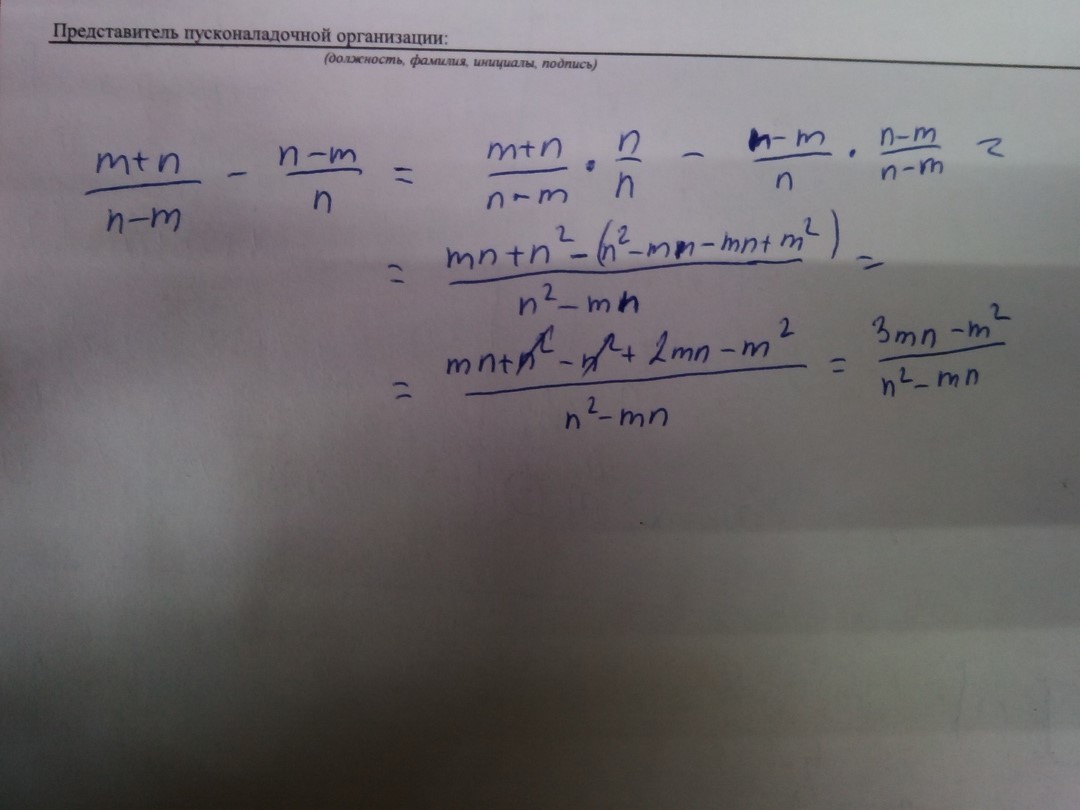 Представитель пусконаладочной организации:
(должность, фамилия, инициалы, подпись)
(m+n)/(n-m) - (n-m)/n = (m+n)/(n-m) · n/n - (n-m)/n · (n-m)/(n-m) =
= (mn+n²-(n²-mn-mn+m²))/(n²-mn) =
= (mn+n²-n²+2mn-m²)/(n²-mn) = (3mn-m²)/(n²-mn)